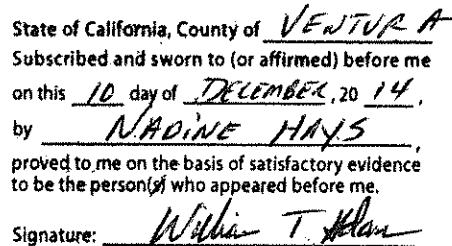 State of California, County of VENTURA
Subscribed and sworn to (or affirmed) before me
on this 10 day of DECEMBER, 20 14,
by NADINE HAYS,
proved to me on the basis of satisfactory evidence
to be the person(s) who appeared before me.
Signature: William T.